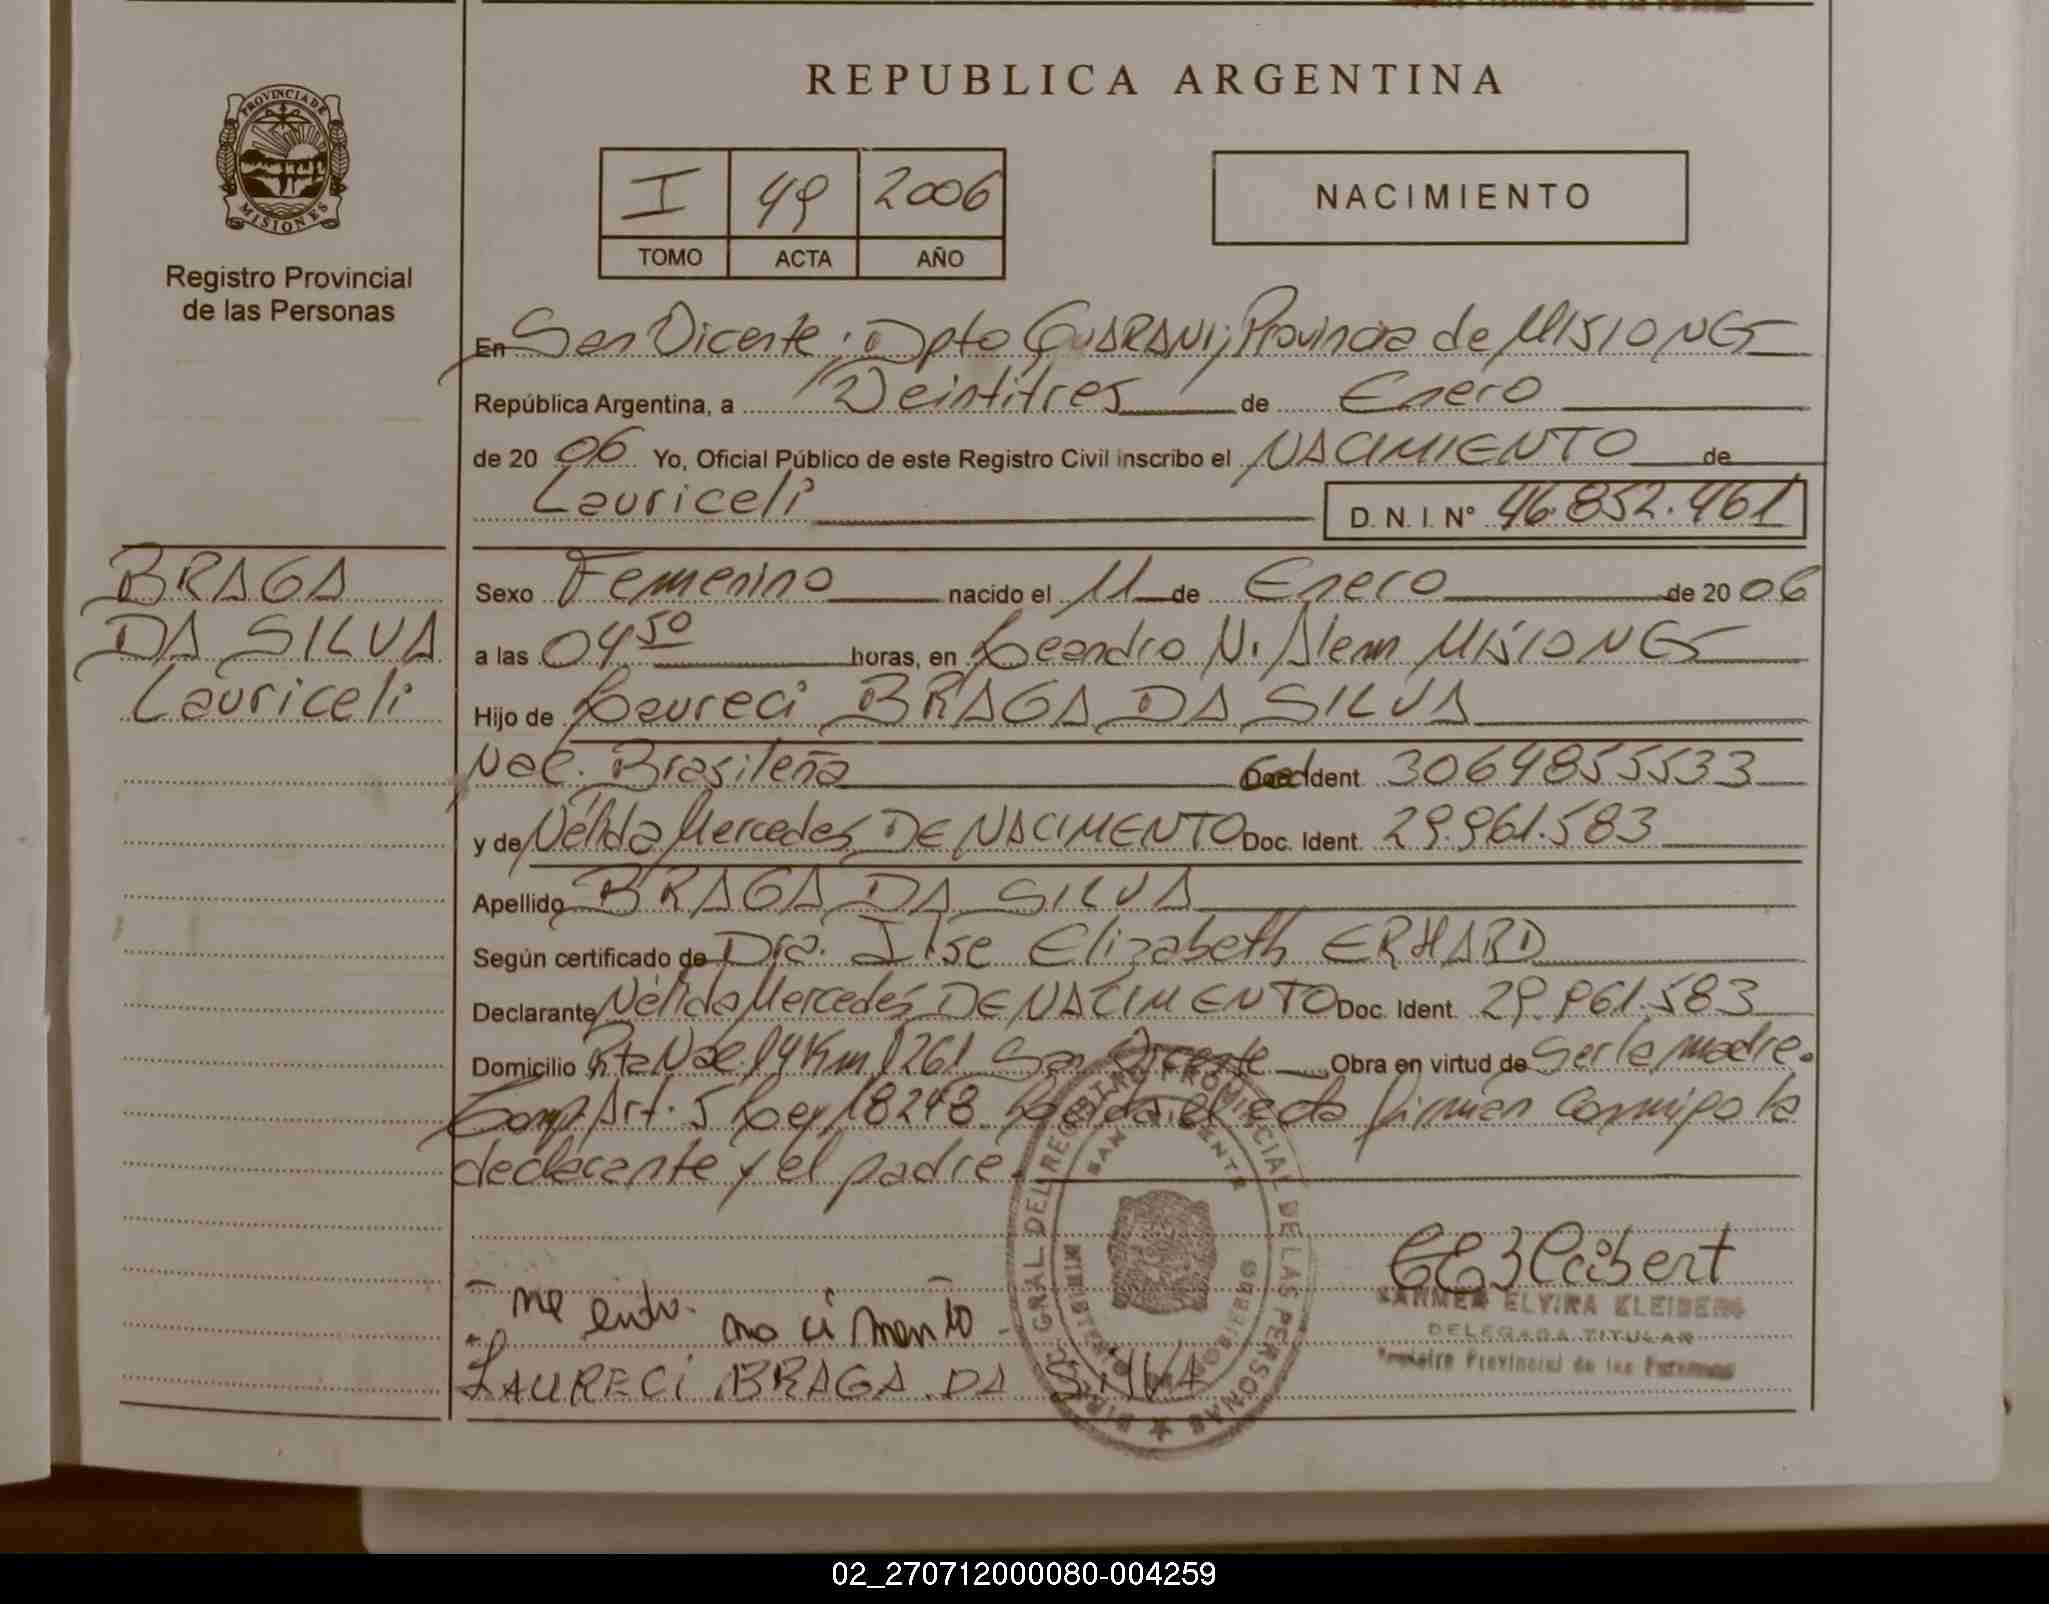 REPUBLICA ARGENTINA
PROVINCIA DE
MISIONES
Registro Provincial
de las Personas
I 49 2006
TOMO ACTA AÑO
NACIMIENTO
En San Vicente, Dpto GUARANI, Provincia de MISIONES
República Argentina, a Veintitres de Enero
de 20 06 Yo, Oficial Público de este Registro Civil inscribo el NACIMIENTO de
Lauriceli D. N. I. N° 46.852.461
BRAGA
DA SILVA
Lauriceli
Sexo Femenino nacido el 11 de Enero de 20 06
a las 04 50 horas, en Leandro N. Alem MISIONES
Hijo de Laureci BRAGA DA SILVA
Nac. Brasileña Ident. 30649855533
y de Nélida Mercedes DE NACIMENTO Doc. Ident. 29.961.583
Apellido BRAGA DA SILVA
Según certificado de Dra. Ilse Elizabeth ERHARD
Declarante Nélida Mercedes DE NACIMENTO Doc. Ident. 29.961.583
Domicilio Rta Nac. 14 Km 1261 San Vicente Obra en virtud de ser la madre.
Comp. Art. 5 Ley 18248. Leída el acta firman conmigo la
declarante y el padre.
GRAL DEL REGISTRO PROVINCIAL DE LAS PERSONAS
SAN VICENTE
MINISTERIO DE GOBIERNO
CARMEN ELVIRA KLEIBERG
DELEGADA TITULAR
Registro Provincial de las Personas
na ci mento
LAURECI BRAGA DA SILVA
02_270712000080-004259